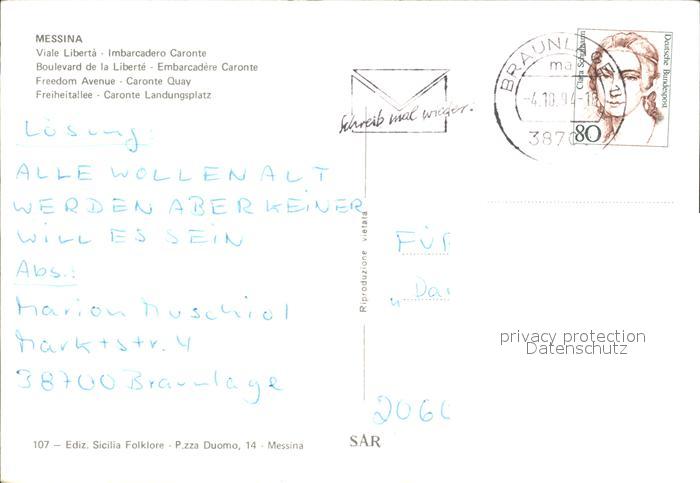 MESSINA
Viale Libertà - Imbarcadero Caronte
Boulevard de la Liberté - Embarcadère Caronte
Freedom Avenue - Caronte Quay
Freiheitallee - Caronte Landungsplatz
Schreib mal wieder!
BRAUNLAGE 1
ma
-4.10.94-18
38700
Clara Schumann
Deutsche Bundespost
80
Lösung:
ALLE WOLLEN ALT
WERDEN ABER KEINER
WILL ES SEIN
Abs.:
Marion Muschiol
Marktstr. 4
38700 Braunlage
Riproduzione vietata
FÜR
„Da
2060
privacy protection
Datenschutz
107 - Ediz. Sicilia Folklore - P.zza Duomo, 14 - Messina
SAR